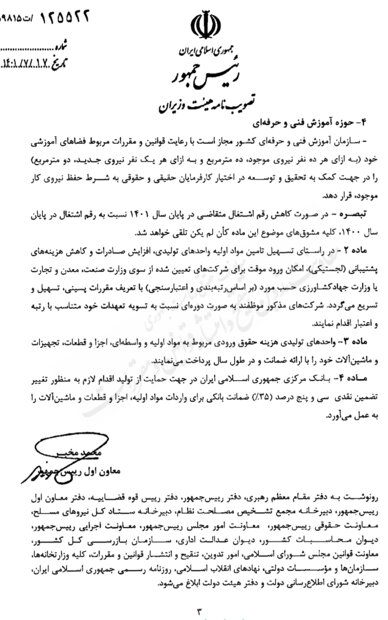 ۱۲۵۵۲۲/ت۵۹۸۱۵
شماره
تاریخ ۱۴۰۱/۷/۱۷
جمهوری اسلامی ایران
رئیس جمهور
تصویب نامه هیئت وزیران
۴- حوزه آموزش فنی و حرفه‌ای
- سازمان آموزش فنی و حرفه‌ای کشور مجاز است با رعایت قوانین و مقررات مربوط فضاهای آموزشی
خود (به ازای هر ده نفر نیروی موجود، ده مترمربع و به ازای هر یک نفر نیروی جدید، دو مترمربع)
را در جهت کمک به تحقیق و توسعه در اختیار کارفرمایان حقیقی و حقوقی به شرط حفظ نیروی کار
موجود، قرار دهد.
تبصره - در صورت کاهش رقم اشتغال متقاضی در پایان سال ۱۴۰۱ نسبت به رقم اشتغال در پایان
سال ۱۴۰۰، کلیه مشوق‌های موضوع این ماده کأن لم یکن تلقی خواهد شد.
ماده ۲ - در راستای تسهیل تامین مواد اولیه واحدهای تولیدی، افزایش صادرات و کاهش هزینه‌های
پشتیبانی (لجستیکی)، امکان ورود موقت برای شرکت‌های تعیین شده از سوی وزارت صنعت، معدن و تجارت
یا وزارت جهادکشاورزی حسب مورد (بر اساس رتبه‌بندی و اعتبارسنجی) با تعریف مقررات پسینی، تسهیل و
تسریع می‌گردد. شرکت‌های مذکور موظفند به صورت دوره‌ای نسبت به تسویه تعهدات خود متناسب با رتبه
و اعتبار اقدام نمایند.
ماده ۳- واحدهای تولیدی هزینه حقوق ورودی مربوط به مواد اولیه و واسطه‌ای، اجزا و قطعات، تجهیزات
و ماشین‌آلات خود را با ارائه ضمانت و در طول سال پرداخت می‌نمایند.
ماده ۴- بانک مرکزی جمهوری اسلامی ایران در جهت حمایت از تولید اقدام لازم به منظور تغییر
تضمین نقدی سی و پنج درصد (۳۵٪) ضمانت بانکی برای واردات مواد اولیه، اجزا و قطعات و ماشین‌آلات را
به عمل می‌آورد.
محمد مخبر
معاون اول رییس جمهور
رونوشت به دفتر مقام معظم رهبری، دفتر رییس‌جمهور، دفتر رییس قوه قضاییه، دفتر معاون اول
رییس‌جمهور، دبیرخانه مجمع تشخیص مصلحت نظام، دبیرخانه ستاد کل نیروهای مسلح،
معاونت حقوقی رییس‌جمهور، معاونت امور مجلس رییس‌جمهور، معاونت اجرایی رییس‌جمهور،
دیوان محاسبات کشور، دیوان عدالت اداری، سازمان بازرسی کل کشور،
معاونت قوانین مجلس شورای اسلامی، امور تدوین، تنقیح و انتشار قوانین و مقررات، کلیه وزارتخانه‌ها،
سازمان‌ها و مؤسسات دولتی، نهادهای انقلاب اسلامی، روزنامه رسمی جمهوری اسلامی ایران،
دبیرخانه شورای اطلاع‌رسانی دولت و دفتر هیئت دولت ابلاغ می‌شود.
۳